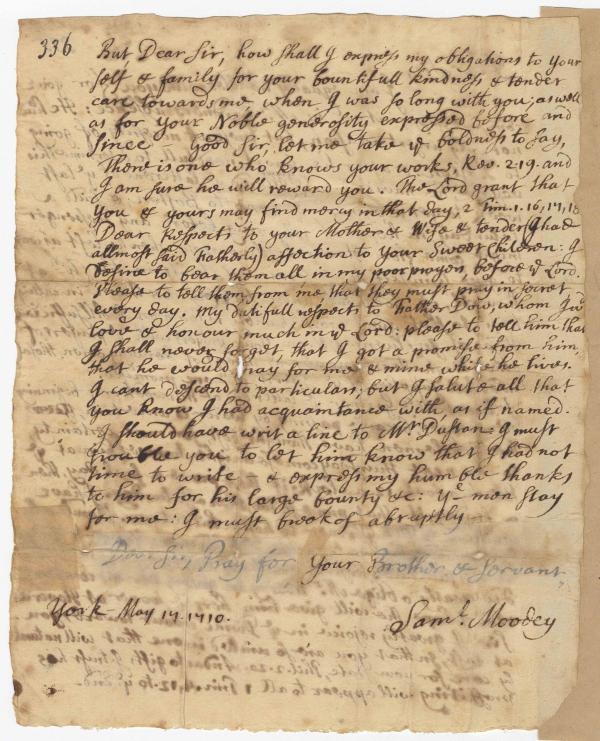 336
But, Dear Sir, how shall I express my obligations to your
self & family for your bountifull kindness & tender
care towards me when I was so long with you; as well
as for your Noble generosity expressed before and
since – Good Sir, let me take ye boldness to say,
There is one who knows your works, Rev. 2.19. and
I am sure he will reward you. The Lord grant that
you & yours may find mercy in that day, 2 Tim. 1. 16, 17, 18
Dear Respects to your Mother & Wife & tender (I had
allmost said Fatherly) affection to your Sweet Children: I
desire to bear them all in my poor prayers, before ye Lord.
Please to tell them from me, that they must pray in secret
every day. My dutifull respects to Father Dow, whom I
love & honour much in ye Lord: please to tell him that
I shall never forget, that I got a promise from him,
that he would pray for me & mine while he lives.
I cant descend to particulars; but I salute all that
you know I had acquaintance with, as if named.
I should have writ a line to Mr. Dustan: I must
trouble you to let him know that I had not
time to write – & express my humble thanks
to him for his large bounty &c: Ye men stay
for me: I must break of abruptly
Dear Sir, Pray for your Brother & Servant,
York May 17. 1710.
Saml. Moodey